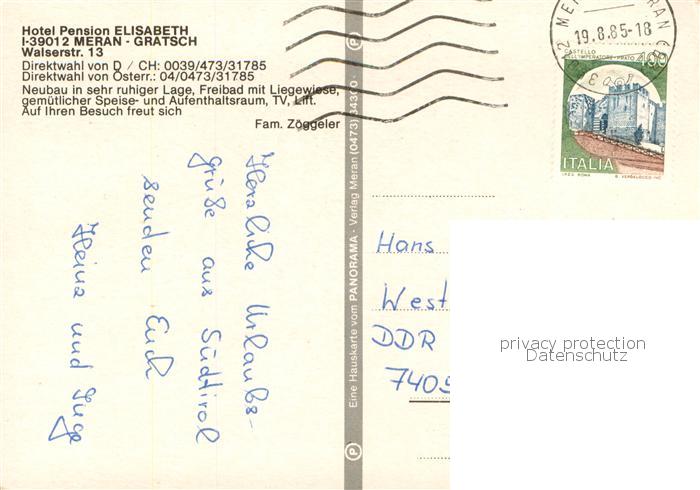 Hotel Pension ELISABETH
I-39012 MERAN - GRATSCH
Walserstr. 13
Direktwahl von D / CH: 0039/473/31785
Direktwahl von Österr.: 04/0473/31785
Neubau in sehr ruhiger Lage, Freibad mit Liegewiese,
gemütlicher Speise- und Aufenthaltsraum, TV, Lift.
Auf Ihren Besuch freut sich
Fam. Zöggeler
Herzliche Urlaubs-
grüße aus Südtirol
senden Euch
Heinz und Inge
Eine Hauskarte vom PANORMA - Verlag Meran (0473) 34300 -
19.8.85-18
CASTELLO
DELL'IMPERATORE-PRATO
400
ITALIA
I.P.Z.S. ROMA
Hans
West
DDR
7405
privacy protection
Datenschutz